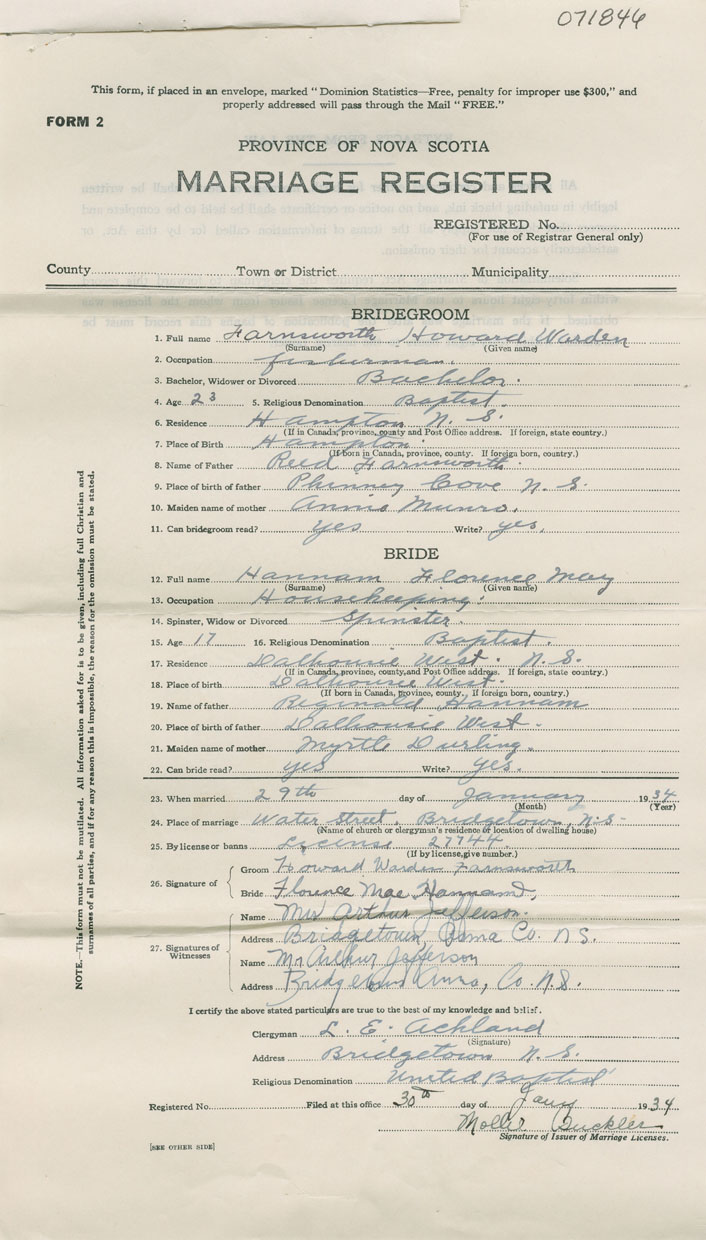 071846
This form, if placed in an envelope, marked "Dominion Statistics—Free, penalty for improper use $300," and
properly addressed will pass through the Mail "FREE."
FORM 2
PROVINCE OF NOVA SCOTIA
MARRIAGE REGISTER
REGISTERED No.
(For use of Registrar General only)
County Town or District Municipality
BRIDEGROOM
1. Full name Farnsworth Howard Warden
(Surname) (Given name)
2. Occupation fisherman.
3. Bachelor, Widower or Divorced Bachelor.
4. Age 23 5. Religious Denomination Baptist.
6. Residence Hampton N. S.
(If in Canada, province, county and Post Office address. If foreign, state country.)
7. Place of Birth Hampton.
(If born in Canada, province, county. If foreign born, country.)
8. Name of Father Reed Farnsworth.
9. Place of birth of father Phinney Cove N. S.
10. Maiden name of mother Annie Munro.
11. Can bridegroom read? yes Write? yes.
BRIDE
12. Full name Hannam Florence May
(Surname) (Given name)
13. Occupation Housekeeping.
14. Spinster, Widow or Divorced Spinster.
15. Age 17 16. Religious Denomination Baptist.
17. Residence Dalhousie West. N. S.
(If in Canada, province, county, and Post Office address. If foreign, state country.)
18. Place of birth Dalhousie West.
(If born in Canada, province, county. If foreign born, country.)
19. Name of father Reginald Hannam
20. Place of birth of father Dalhousie West.
21. Maiden name of mother Myrtle Durling.
22. Can bride read? yes Write? yes.
23. When married 29th day of January 1934
(Month) (Year)
24. Place of marriage Water Street, Bridgetown, N. S.
(Name of church or clergyman's residence or location of dwelling house)
25. By license or banns License 27744.
(If by license, give number.)
26. Signature of
Groom Howard Warden Farnsworth
Bride Florence Mae Hannam.
27. Signatures of Witnesses
Name Mrs Arthur Jefferson.
Address Bridgetown, Co. N S.
Name Mr Arthur Jefferson
Address Bridgetown Anna, Co. N.S.
I certify the above stated particulars are true to the best of my knowledge and belief.
Clergyman L. E. Ackland
(Signature)
Address Bridgetown N. S.
Religious Denomination United Baptist
Registered No. Filed at this office 30th day of Jany 1934
Buckler
Signature of Issuer of Marriage Licenses.
[SEE OTHER SIDE]
NOTE.—This form must not be mutilated. All information asked for is to be given, including full Christian and
surnames of all parties, and if for any reason this is impossible, the reason for the omission must be stated.